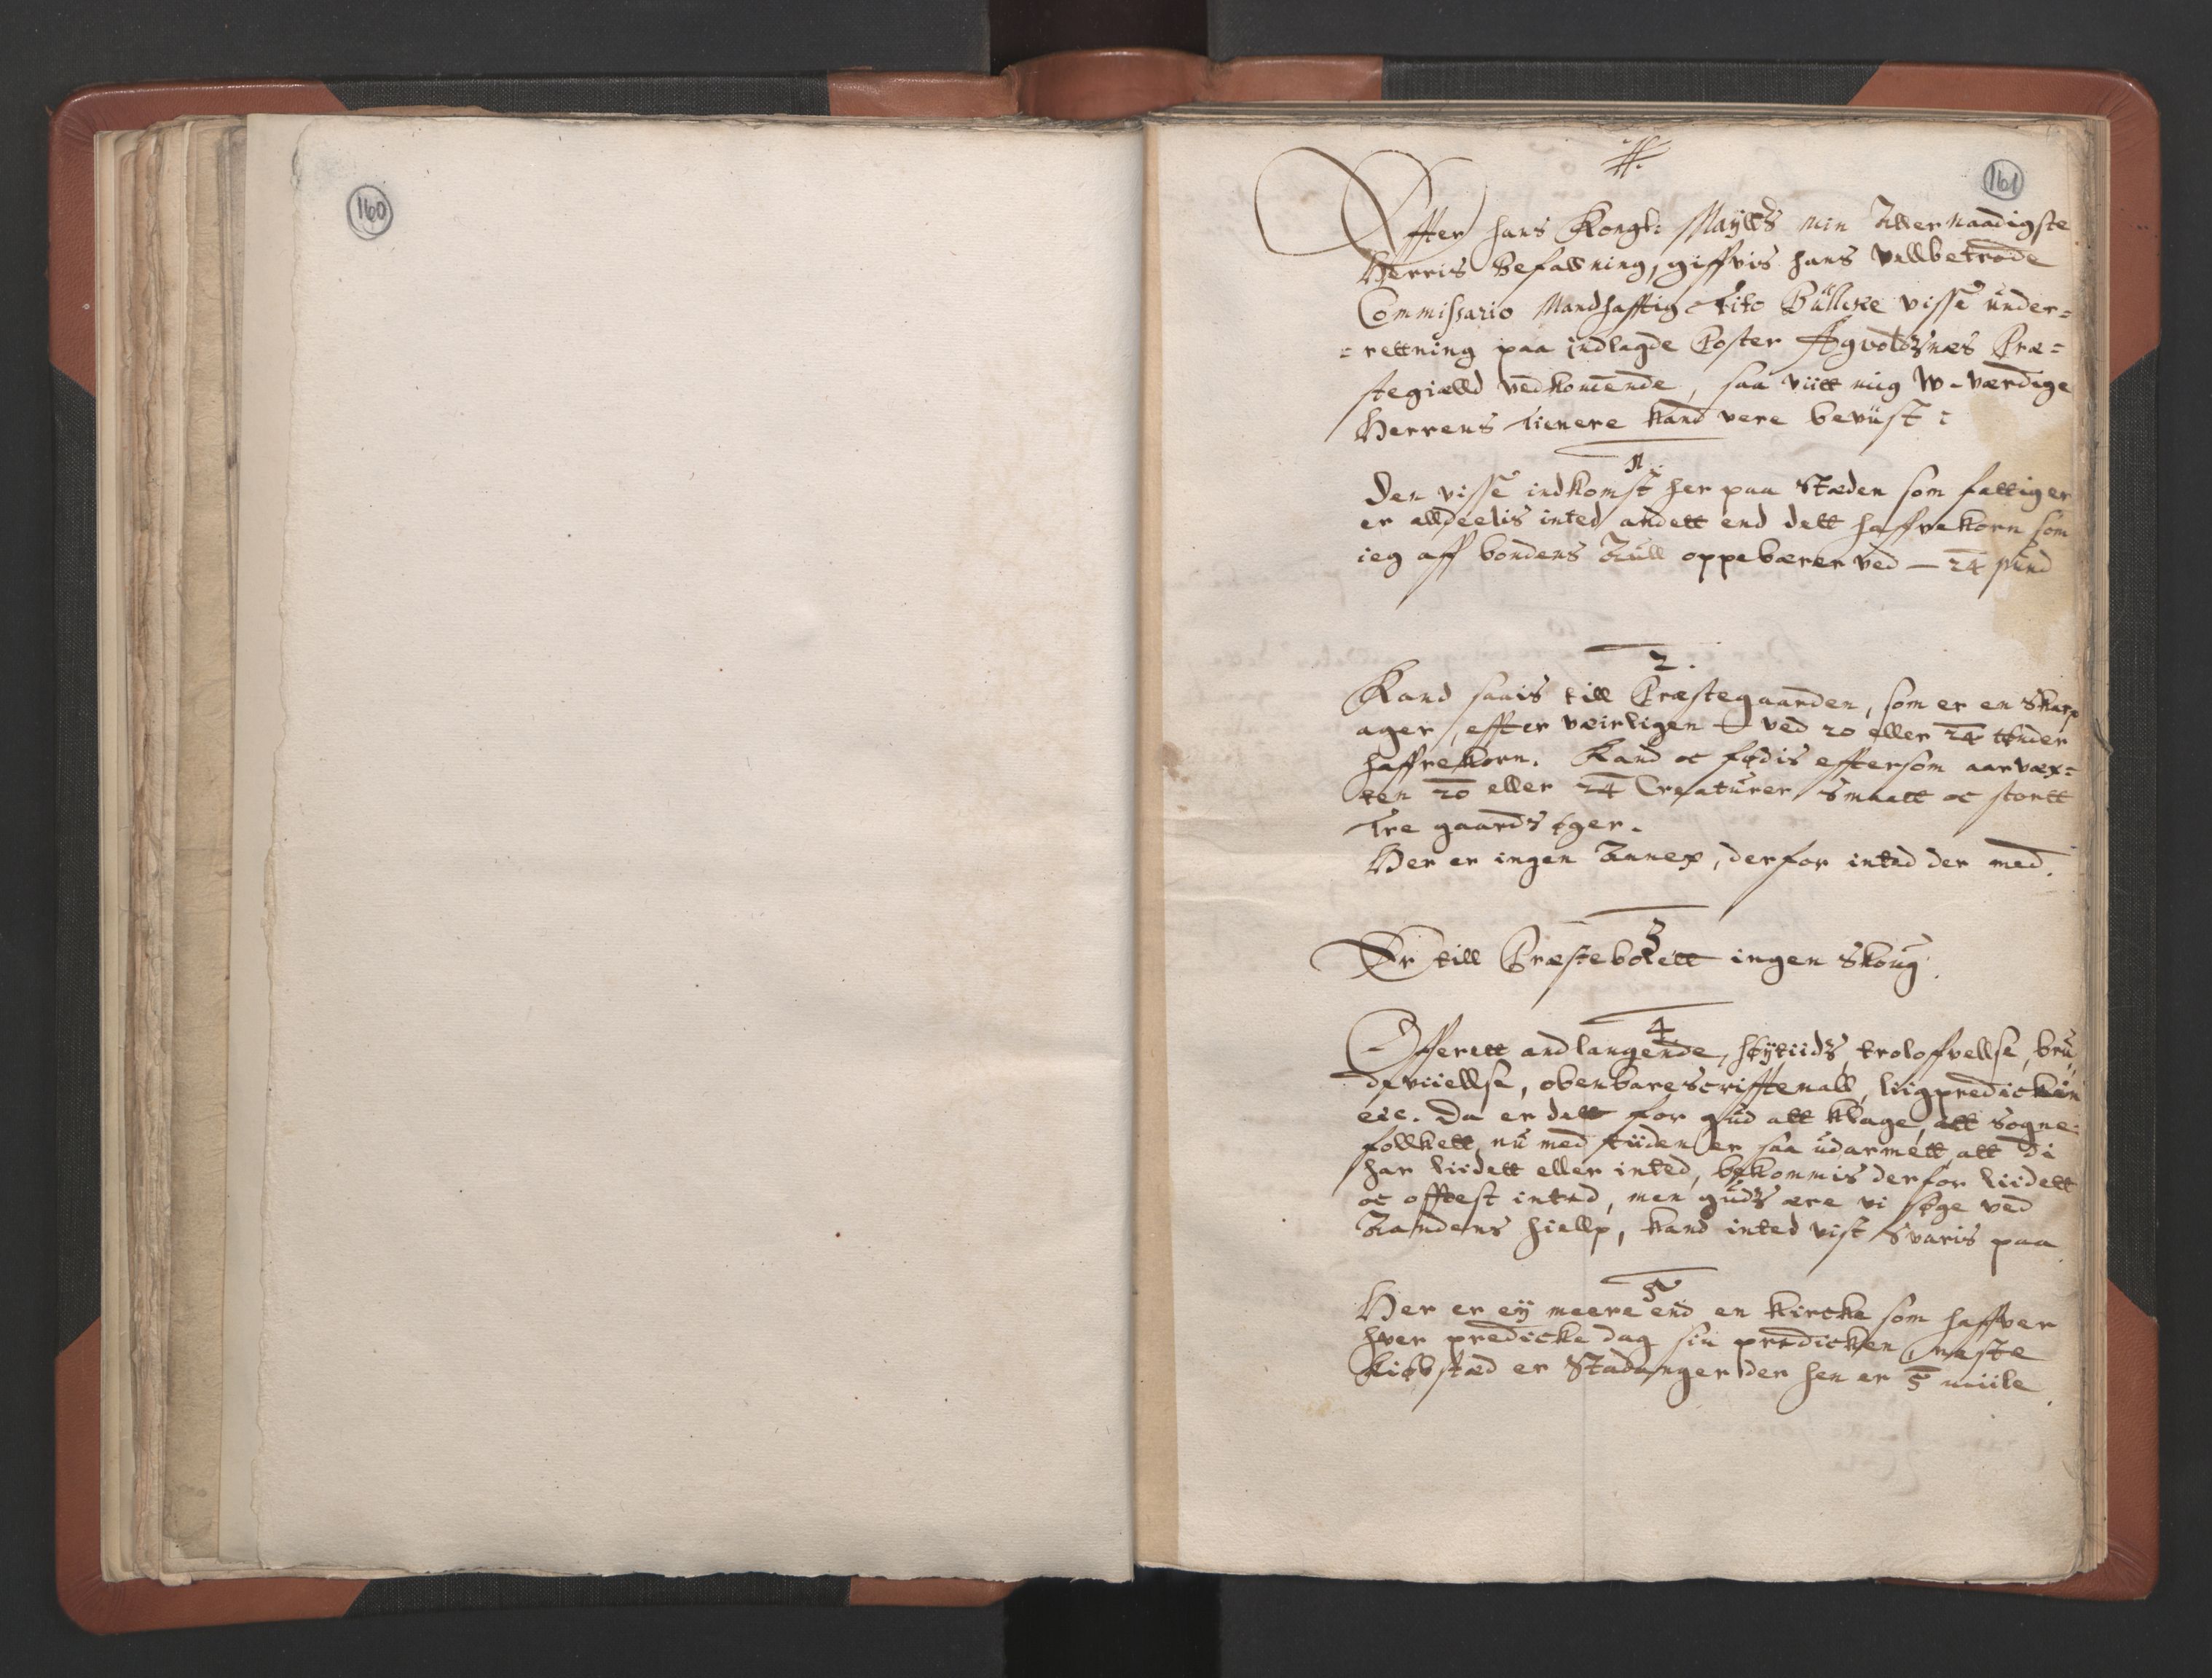 160
161
Effter hans Kongl: Maÿtts min Allernaadigste
Herris Befallning, giffvis hans vellbetrode
Commissario Mandhafftig Tito Bülche visse under=
=rettning paa indlagde Poster Agvoldznæs Præ=
stegielld vedkomende, saa viitt mig W-værdige
Herrens Tienere kand vere bevüst:
1.
Den visse indkomst her paa Stæden som fattig er
er alldeelis inted andett end dett haffrekorn som
ieg aff bondens Aull oppebærer ved — 24 pund
2.
Kand saais till Præstegaarden, som er en skarp
ager, effter værligen — ved 20 eller 24 tønder
haffrekorn. Kand oc fødis eftersom aarvæx=
ten 20 eller 24 Creaturer smaatt oc stortt
Tre gaards øger.
Her er ingen Annex, derfor inted der med.
3
Er till Præstebolett ingen Skoug.
4
Offerett andlangende, høÿtiids, troloffvellse, bru
deviiellse, obenbare scrifftemall, liigpredicken
etc. Da er dett for gud att klage, att Sogne=
follkett nu med tiiden er saa udarmett att di
har liidett eller inted, bekommis derfor liidett
oc offtest inted, men guds ære vi søge ved
Aandens hiellp, kand inted vist Svaris paa
5
Her er eÿ meere end en kircke som haffver
hver predicke dag sin predicken, neste
kiøbstæd er Stadanger der hen er 5 miile.